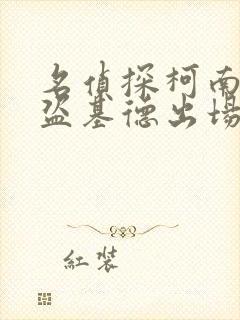 名偵探柯南
盜基德出場
紅裝